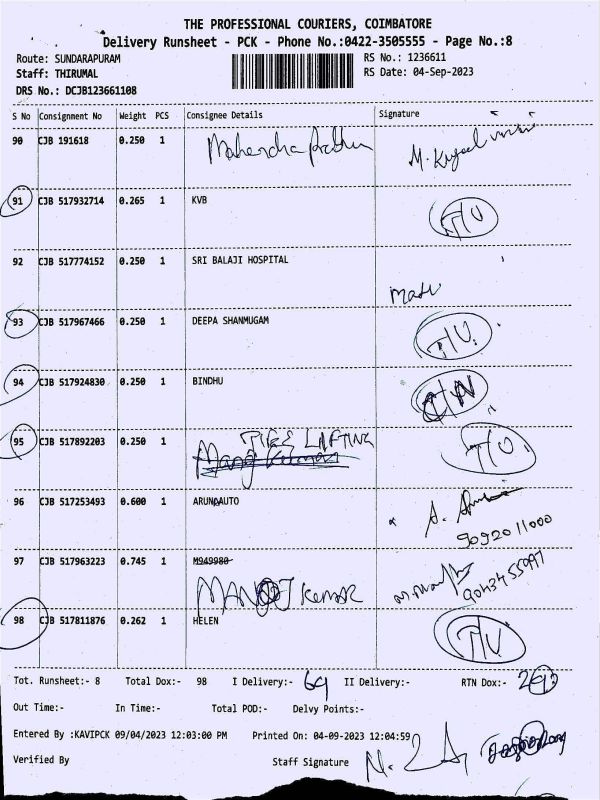 THE PROFESSIONAL COURIERS, COIMBATORE
Delivery Runsheet - PCK - Phone No.:0422-3505555 - Page No.:8
Route: SUNDARAPURAM RS No.: 1236611
Staff: THIRUMAL RS Date: 04-Sep-2023
DRS No.: DCJB123661108
S No Consignment No Weight PCS Consignee Details Signature
90 CJB 191618 0.250 1 Mahendra
91 CJB 517932714 0.265 1 KVB T/U
92 CJB 517774152 0.250 1 SRI BALAJI HOSPITAL
93 CJB 517967466 0.250 1 DEEPA SHANMUGAM T/U.
94 CJB 517924830 0.250 1 BINDHU
95 CJB 517892203 0.250 1 T/U.
96 CJB 517253493 0.600 1 ARUNAUTO
9092011000
97 CJB 517963223 0.745 1 M949980
MANOJ kumar
98 CJB 517811876 0.262 1 HELEN T/U
Tot. Runsheet:- 8 Total Dox:- 98 I Delivery:- 69 II Delivery:- RTN Dox:-
Out Time:- In Time:- Total POD:- Delvy Points:-
Entered By :KAVIPCK 09/04/2023 12:03:00 PM Printed On: 04-09-2023 12:04:59
Verified By Staff Signature